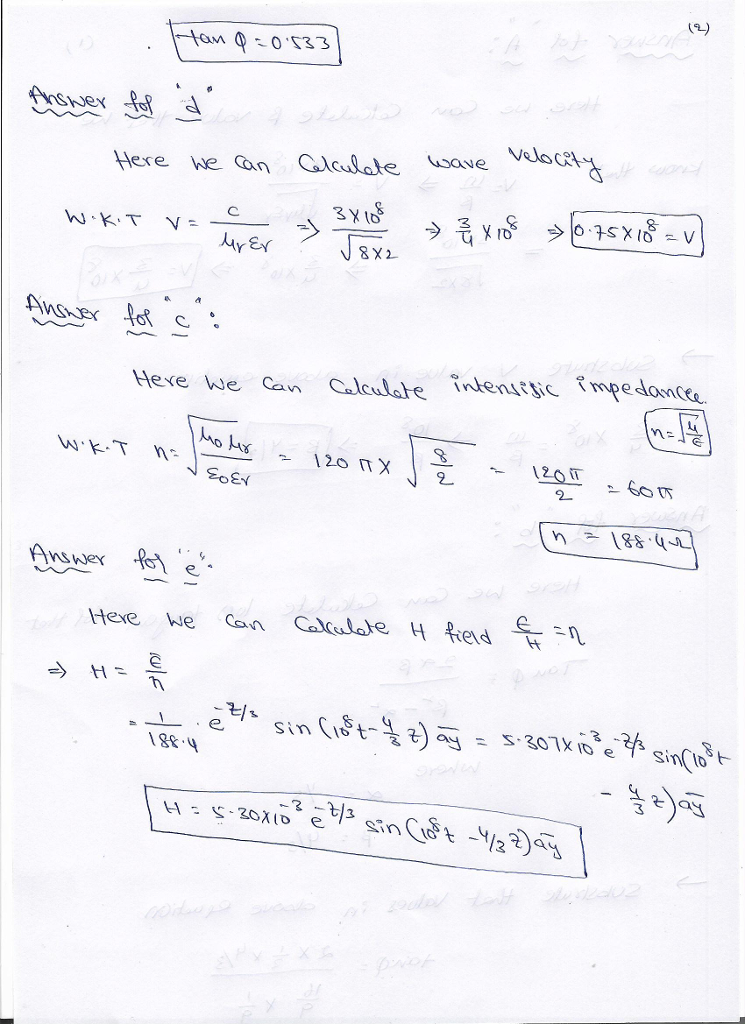 (2)
tan φ = 0.533
Answer for "d"
Here we can Calculate wave velocity
W.K.T V = c / μrεr ⇒ 3×10⁸ / √8×2 ⇒ 3/4 × 10⁸ ⇒ 0.75×10⁸ = V
Answer for "c":
Here we can Calculate intensisic impedancee.
n = √μ/ε
W.K.T n = √μ0μr / ε0εr = 120π × √8/2 = 120π / 2 = 60π
n = 188.4Ω
Answer for "e".
Here we can Calculate H field E/H = η
⇒ H = E̅/n
= 1/188.4 . e^-z/3 sin (10⁸t - 4/3 z) a̅y = 5.307×10^-3 e^-z/3 sin(10⁸t
- 4/3 z) a̅y
H = 5.30×10^-3 e^-z/3 sin (10⁸t - 4/3 z) a̅y